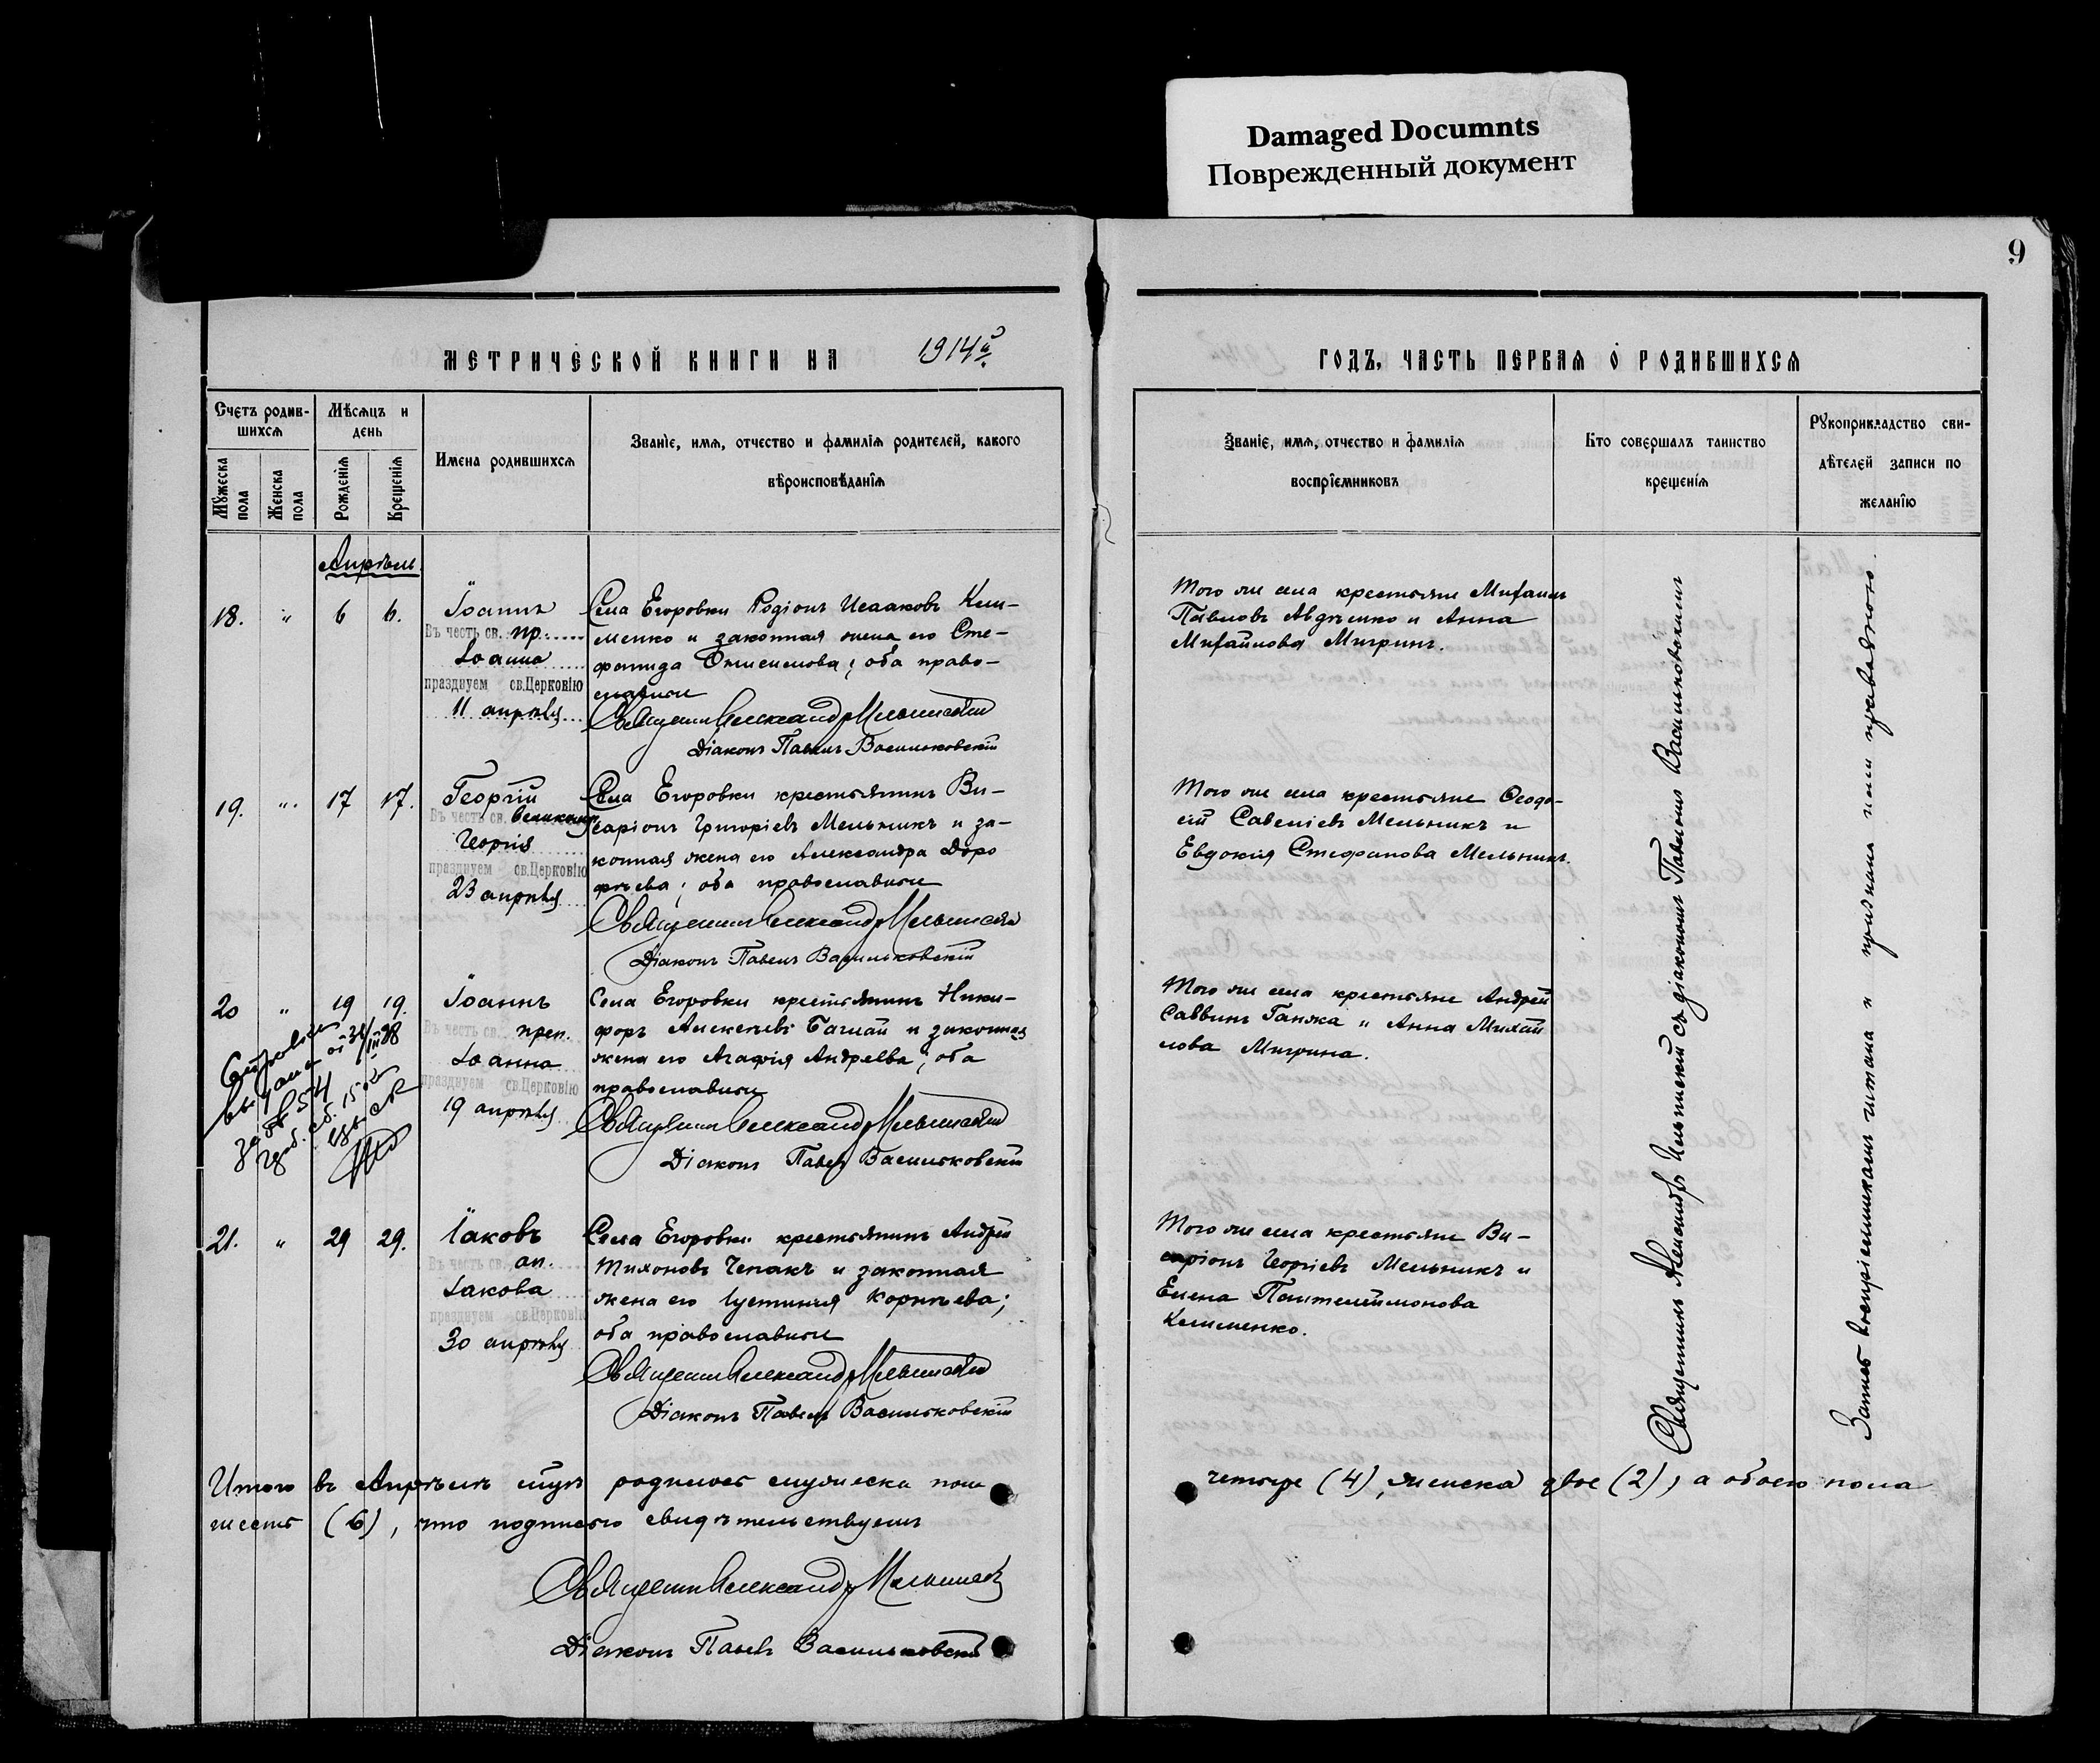 Damaged Documnts
Поврежденный документ
9
МЕТРИЧЕСКОЙ КНИГИ НА 1914й
Счетъ родив-
шихся
Мѣсяцъ и
день
Мужеска
пола
Женска
пола
Рожденія
Крещенія
Имена родившихся
Званіе, имя, отчество и фамилія родителей, какого
вѣроисповѣданія
Апрѣль.
18. " 6 6.
Іоаннъ
Въ честь св. пр.
Іоанна
празднуем св.Церковію
11 апрѣля
Села Егоровки Родіонъ Исааковъ Кли-
менко и законная жена его Сте-
фанида Онисимова; оба право-
славные
Священникъ Александръ
Діаконъ Павелъ Васильковскій
19. " 17 17.
Георгій
Въ честь св. великом.
Георгія
празднуем св.Церковію
23 апрѣля
Села Егоровки крестьянинъ Ви-
саріонъ Григоріевъ Мельникъ и за-
конная жена его Александра Доро
фѣева; оба православные
Священникъ Александръ
Діаконъ Павелъ Васильковскій
20 " 19 19.
Іоаннъ
Въ честь св. преп.
Іоанна
празднуем св.Церковію
19 апрѣля
Села Егоровки крестьянинъ Ники-
форъ Алексѣевъ Баглай и законная
жена его Агафія Андреева; оба
православные
Священникъ Александръ
Діаконъ Павелъ Васильковскій
выдана от
за № 54
21. " 29 29.
Іаковъ
Въ честь св. ап.
Іакова
празднуем св.Церковію
30 апрѣля
Села Егоровки крестьянинъ Андрей
Тихоновъ Чепакъ и законная
жена его Іустинія Корнѣева;
оба православные
Священникъ Александръ
Діаконъ Павелъ Васильковскій
Итого въ Апрѣлѣ родилось мужеска пола
шесть (6), что подписью свидѣтельствуемъ
Священникъ Александръ
Діаконъ Павелъ Васильковскій
ГОДЪ, ЧАСТЬ ПЕРВАЯ О РОДИВШИХСЯ
Званіе, имя, отчество и фамилія
воспріемниковъ
Кто совершалъ таинство
крещенія
Рукоприкладство сви-
дѣтелей записи по
желанію
Того же села крестьяне Михаилъ
Павловъ Авдѣенко и Анна
Михайлова Мигринъ.
Того же села крестьяне Феодо-
сій Савеліевъ Мельникъ и
Евдокія Стефанова Мельникъ.
Того же села крестьяне Андрей
Саввинъ Ганжа и Анна Михай
лова Мигрина.
Того же села крестьяне Ви-
саріонъ Георгіевъ Мельникъ и
Елена Пантелеймонова
Клименко.
Священникъ Александръ съ діакономъ Павломъ Васильковскимъ
Запись воспріемникамъ читана и признана ими правильною.
четыре (4), женска двое (2), а обоего пола